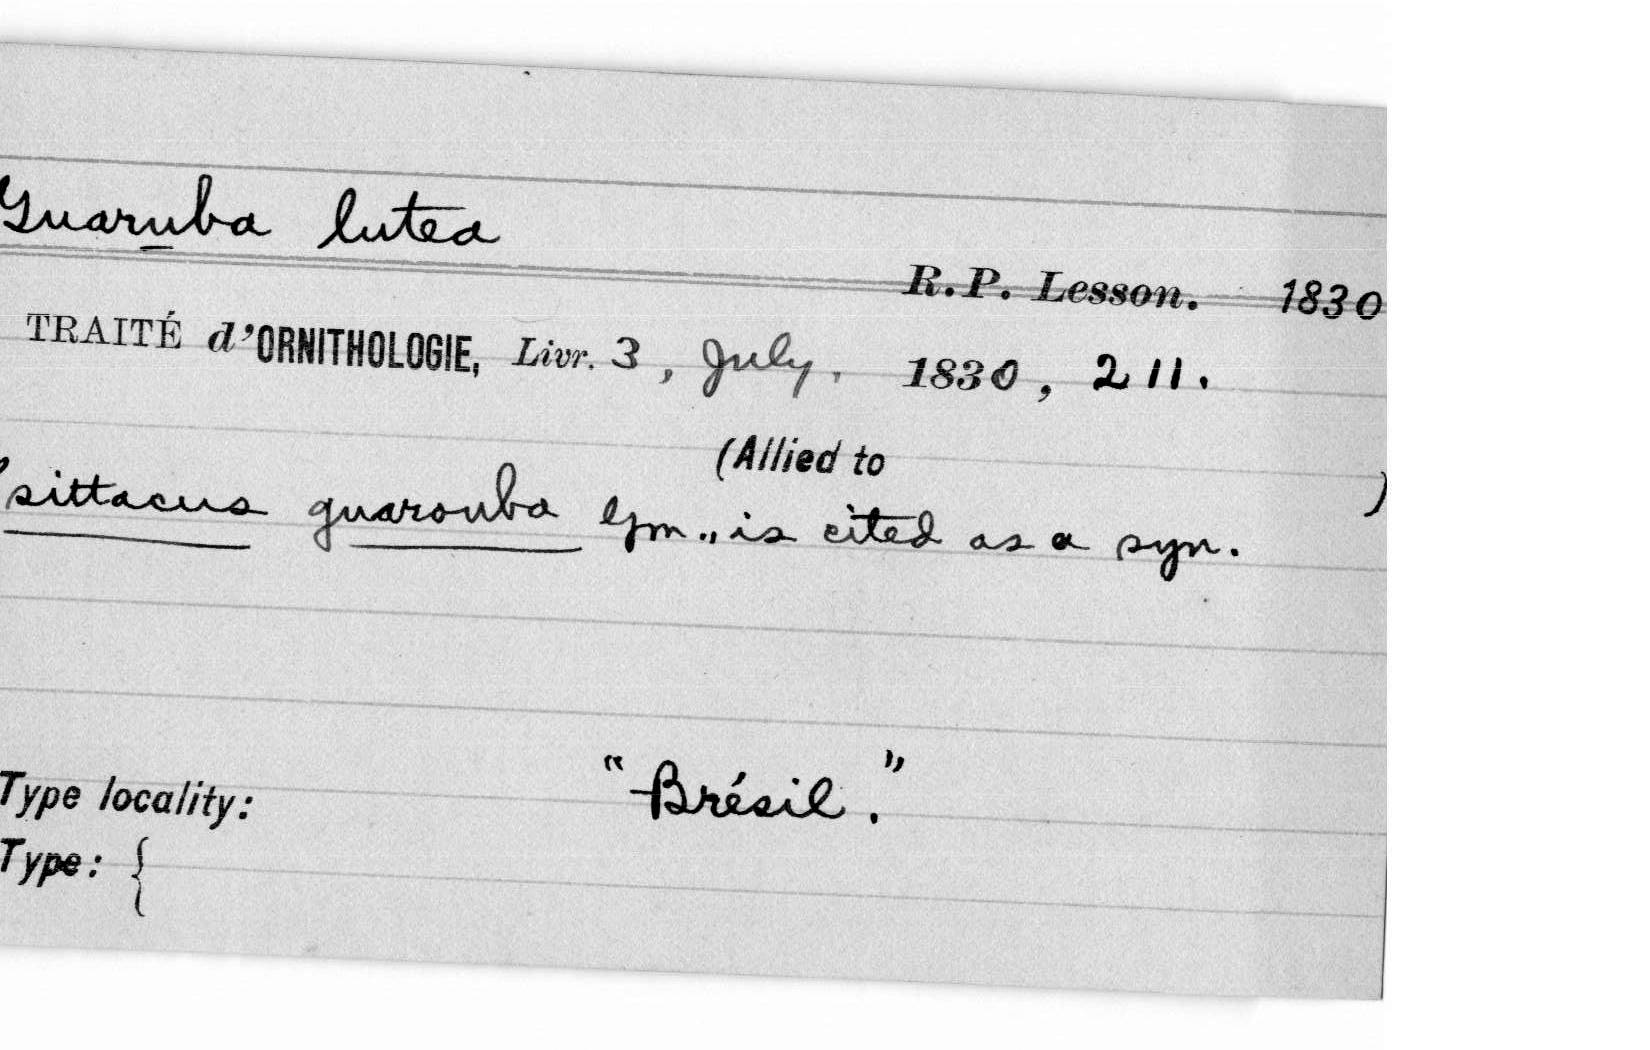 Guaruba lutea
R.P. Lesson. 1830
TRAITÉ d'ORNITHOLOGIE, Livr. 3, July. 1830, 211.
(Allied to )
Psittacus guarouba Gm., is cited as a syn.
Type locality: "Brésil."
Type: {